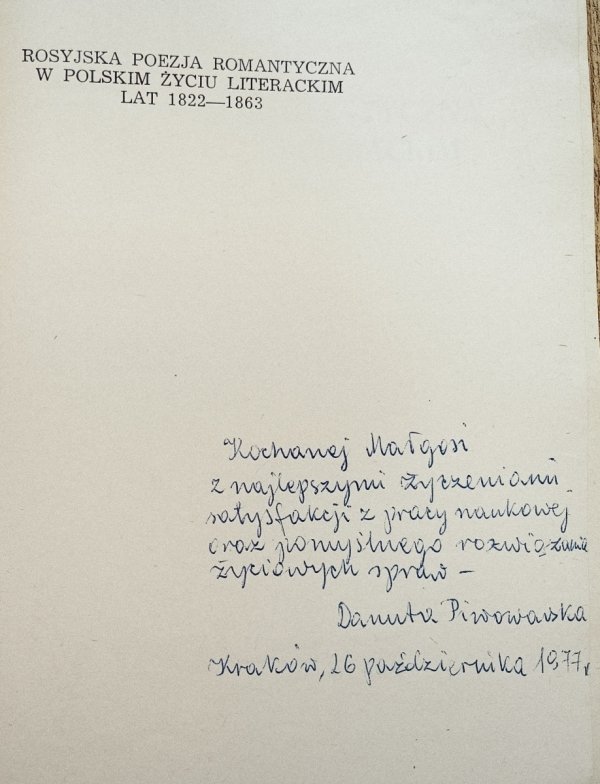 ROSYJSKA POEZJA ROMANTYCZNA
W POLSKIM ŻYCIU LITERACKIM
LAT 1822—1863
Kochanej Małgosi
z najlepszymi życzeniami
satysfakcji z pracy naukowej
oraz pomyślnego rozwiązania
życiowych spraw –
Danuta Piwowarska
Kraków, 26 października 1977r.